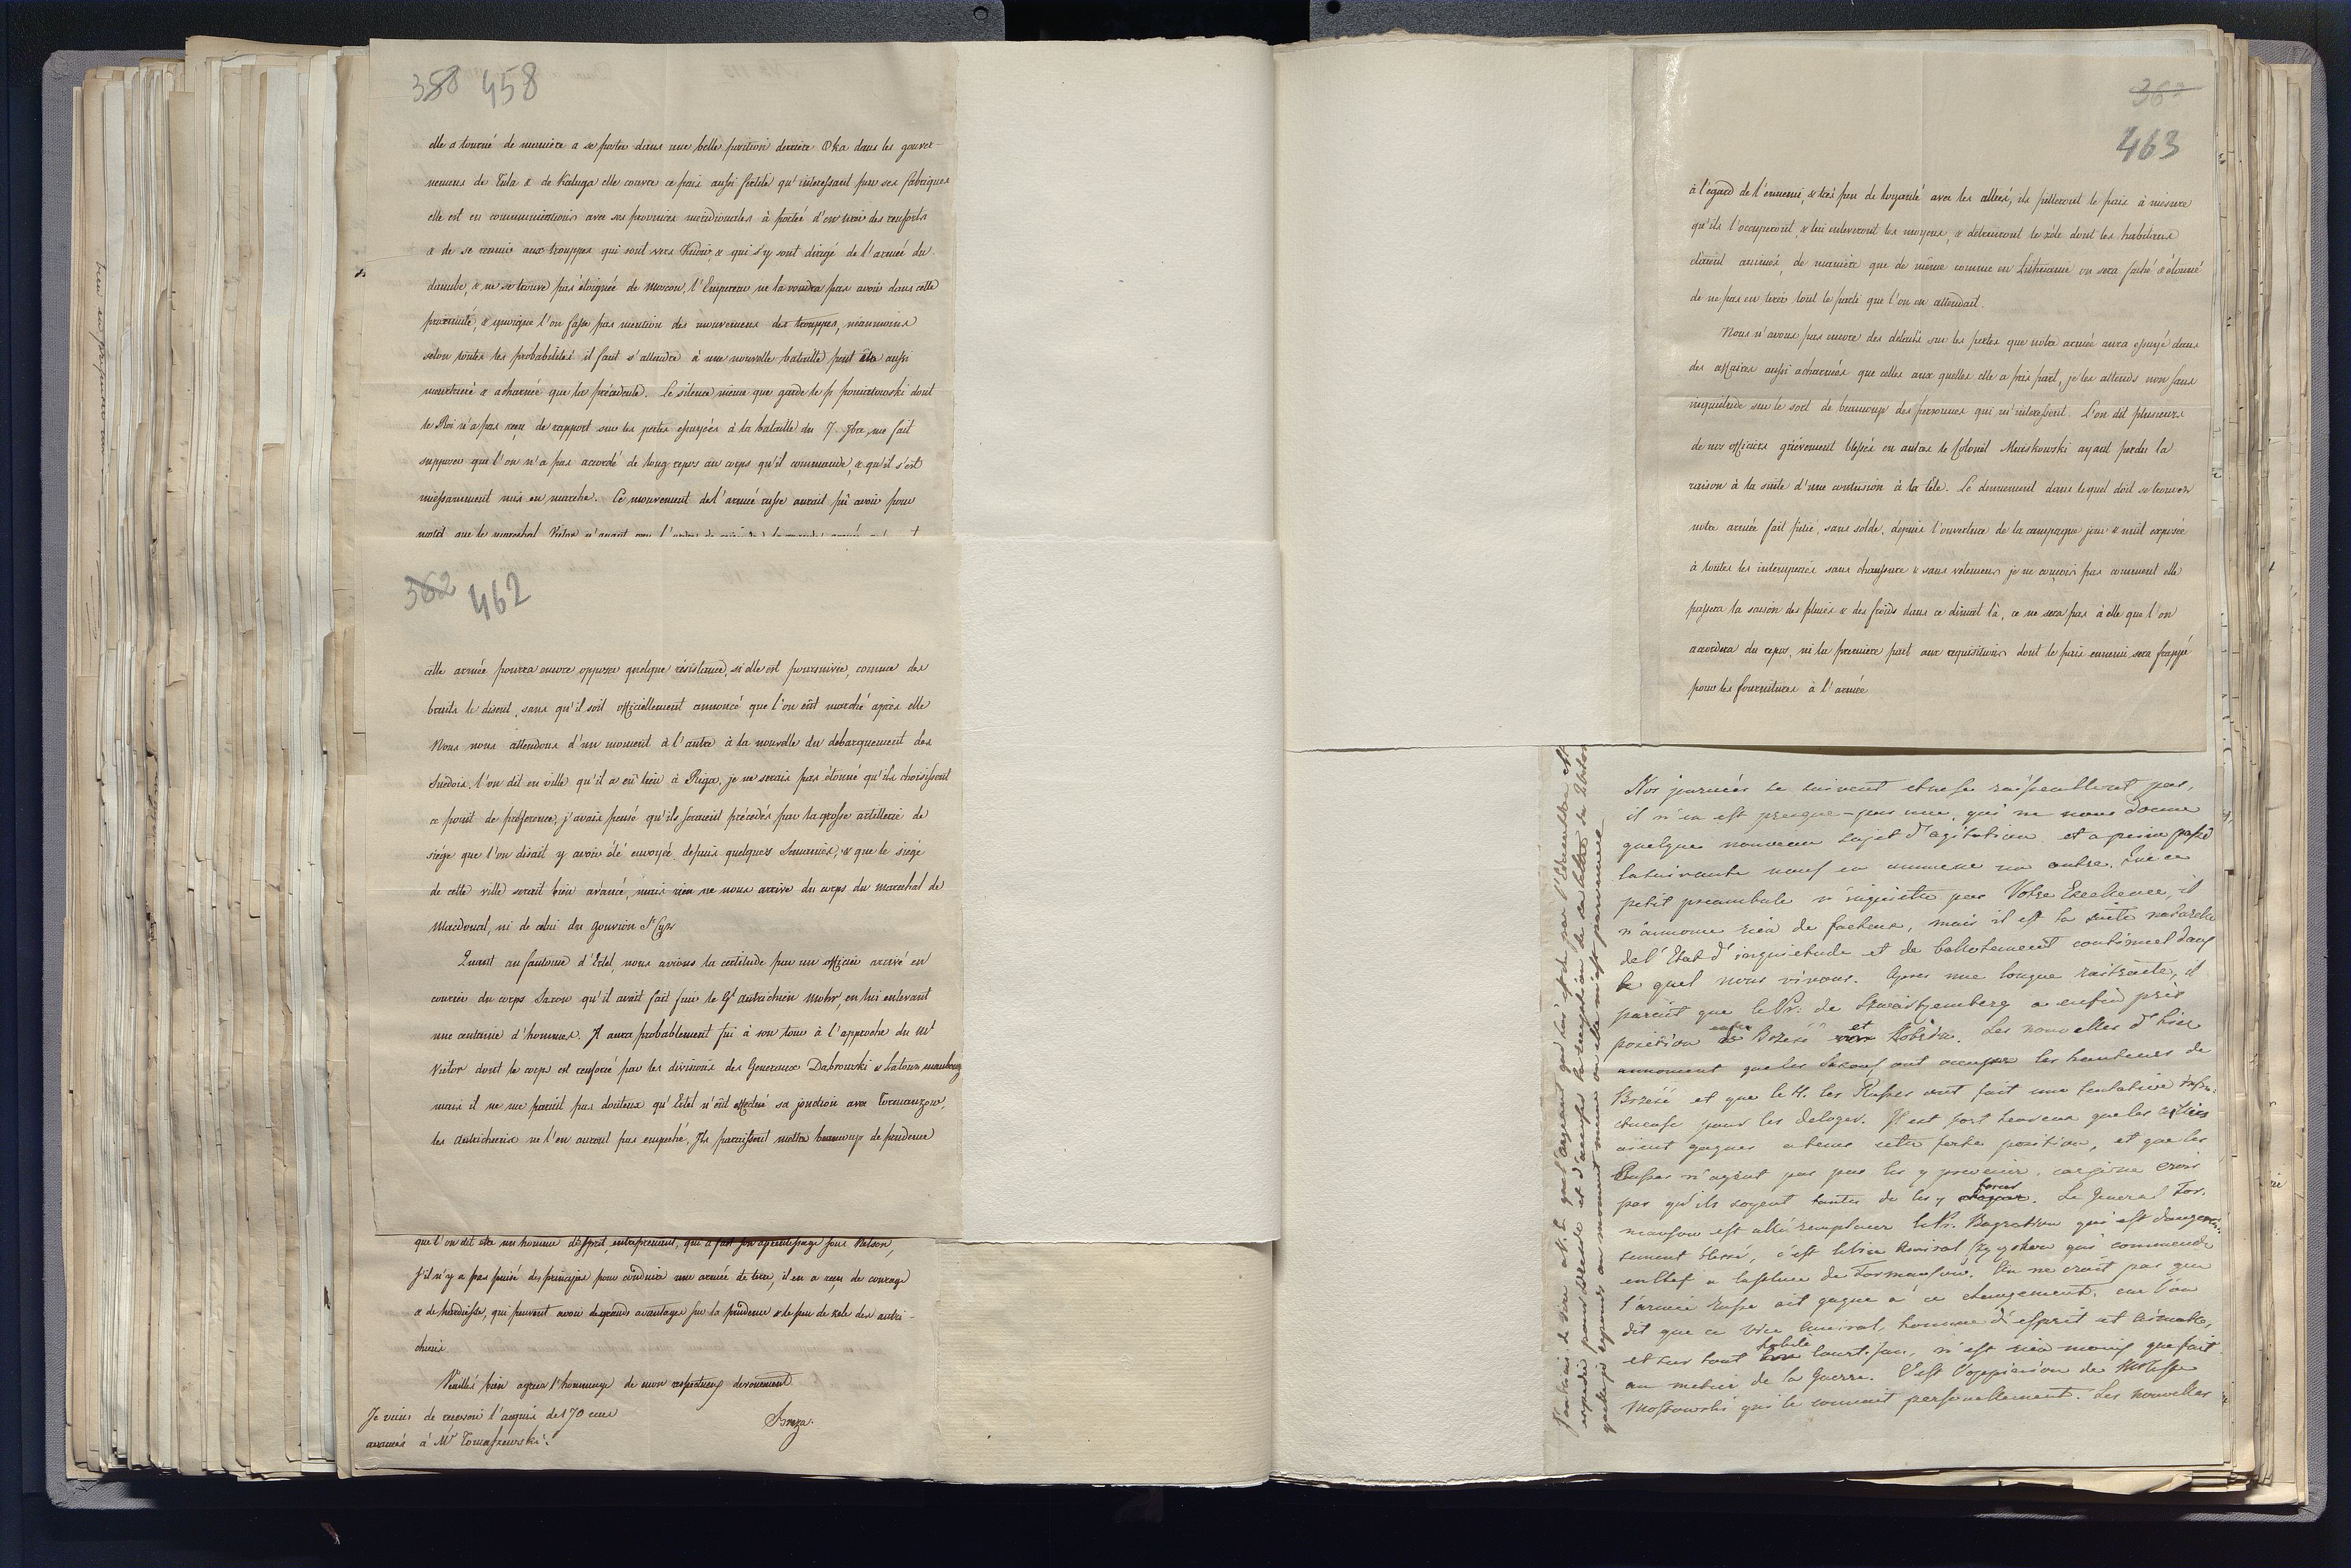 358 458
elle a tourné de manière a se porter dans une belle position derrière Oka dans les gouver-
nemens de Tula & de Kaluga elle couvre ce païs aussi fertile qu'interessant par ses fabriques
elle est en communications avec ses provinces meridionales à portée d'en tirer des renforts
& de se reunir aux trouppes qui sont vers Kiow & qui s'y sont dirigé de l'armée du
danube, & ne se trouve pas éloignée de Moscou, l'Empereur ne la voudra pas avoir dans cette
proximité, & quoique l'on fasse pas mention des mouvemens des trouppes, néanmoins
selon toutes les probabilités il faut s'attendre à une nouvelle bataille peut être aussi
meurtrière & acharnée que la précédente. Le silence même que garde le p. poniatowski dont
le Roi n'a pas reçu de rapport sur les pertes essuyées à la bataille du 7. 7bre, me fait
supposer que l'on n'a pas accordé de long repos au corps qu'il commande, & qu'il s'est
incessamment mis en marche. Ce mouvement de l'armée russe aurait pû avoir pour
motif que le marechal Victor n'ayant
362 462
cette armée pourra encore opposer quelque résistance, si elle est poursuivie, comme des
bruits le disent, sans qu'il soit officiellement annoncé que l'on eût marché après elle
Nous nous attendons d'un moment à l'autre à la nouvelle du debarquement des
Suedois, l'on dit en ville qu'il a eû lieu à Riga, je ne serais pas étonné qu'ils choisissent
ce point de préférence, j'avais pensé qu'ils seraient précédés par la grosse artillerie de
siége que l'on disait y avoir été envoyée depuis quelques Semaines, & que le siege
de cette ville serait bien avancé, mais rien ne nous arrive du corps du marechal de
Macdonal, ni de celui du gouvion St Cyr
Quant au fantome d'Ertel, nous avions la certitude par un officier arrivé en
courier du corps Saxon qu'il avait fait fuir le Gl autrichien Mohr, en lui enlevant
une centaine d'hommes. Il aura probablement fui à son tour à l'approche du Ml
Victor dont le corps est renforcé par les divisions des Generaux Dabrowski & Latour maubourg
mais il ne me parait pas douteux qu'Ertel n'eût effectué sa jonction avec Tormanzow,
les Autrichiens ne l'en auront pas empeché, Ils paraissent mettre beaucoup de prudence
que l'on dit etre un homme d'Esprit, entreprenant, qui a fait son aprentissage sous Nelson,
s'il n'y a pas puisé des principes pour conduire une armée de terre, il en a reçu de courage
& de hardiesse, qui peuvent avoir de grands avantages sur la prudence & le peu de zele des autri-
chiens.
Veuillés bien agréer l'hommage de mon respectueux devouement
Je viens de recevoir l'acquis de 170 ecus
avancés à Mr Tomaszewski.
Breza.
362
463
à l'égard de l'ennemi, & très peu de loyauté avec les alliés, ils pilleront le païs à mesure
qu'ils l'occuperont, & lui enleveront les moyens, & détruiront le zèle dont les habitans
étaient animés, de manière que de même comme en Lithuanie on sera faché & étonné
de ne pas en tirer tout le parti que l'on en attendait.
Nous n'avons pas encore des détails sur les pertes que notre armée aura essuyé dans
des affaires aussi acharnées que celles aux quelles elle a pris part, je les attends non sans
inquiétude sur le sort de beaucoup des personnes qui m'interessent. L'on dit plusieurs
de nos officiers grièvement blessés en autres le Colonel Muiskowski ayant perdu la
raison à la suite d'une contusion à la tête. Le denuement dans lequel doit se trouver
notre armée fait pitié, sans solde, depuis l'ouverture de la campagne jour & nuit exposée
à toutes les intemperies sans chaussure & sans vetemens je ne conçois pas comment elle
passera la saison des pluies & des froids dans ce climat là, ce ne sera pas à elle que l'on
accordera du repos, ni la première part aux requisitions dont le païs ennemi sera frappé
pour les fournitures à l'armée
Nos journées se suivent et ne se ressemblent pas,
il n'en est presque-pas une, qui ne nous donne
quelque nouveau sujet d'agitation et a peine passé
la suivante nous en ammene un autre. Que ce
petit preambule n'inquiette pas Votre Excellence, il
n'annonce rien de facheux, mais il est la suite naturelle
de l'Etat d'inquietude et de ballotement continuel dans
le quel nous vivons. Apres une longue raitraite, il
parait que le Pr: de Szwarzenberg a enfin pris
position entre Brzesc et Kobrin. Les nouvelles d'hier
annoncent que les Saxons ont occupée les hauteurs de
Brzesc et que le 4. les Russes ont fait une tentative infru-
ctueuse pour les deloger. Il est fort heureux que les notres
aient gagnés a tems cette forte position, et que les
Russes n'ayent pas pus les y prevenir, car je ne crois
pas qu'ils soyent tentés de les y forcer. Le General Tor-
mansow est allé remplacer le Pr. Bagration qui est dangereu-
sement blessé, c'est le Vice Amiral Czyczakow qui commende
en Chef a la place de Tormansow. On ne croit pas que
l'armée Russe ait gagné a ce changement, car l'on
dit que ce Vice Amiral, homme d'esprit et aimable,
et sur tout habile courtisan, n'est rien moins que fait
au metier de la Guerre. C'est l'oppinion de Mr
Mostowski qui le connait personellement. Les nouvelles